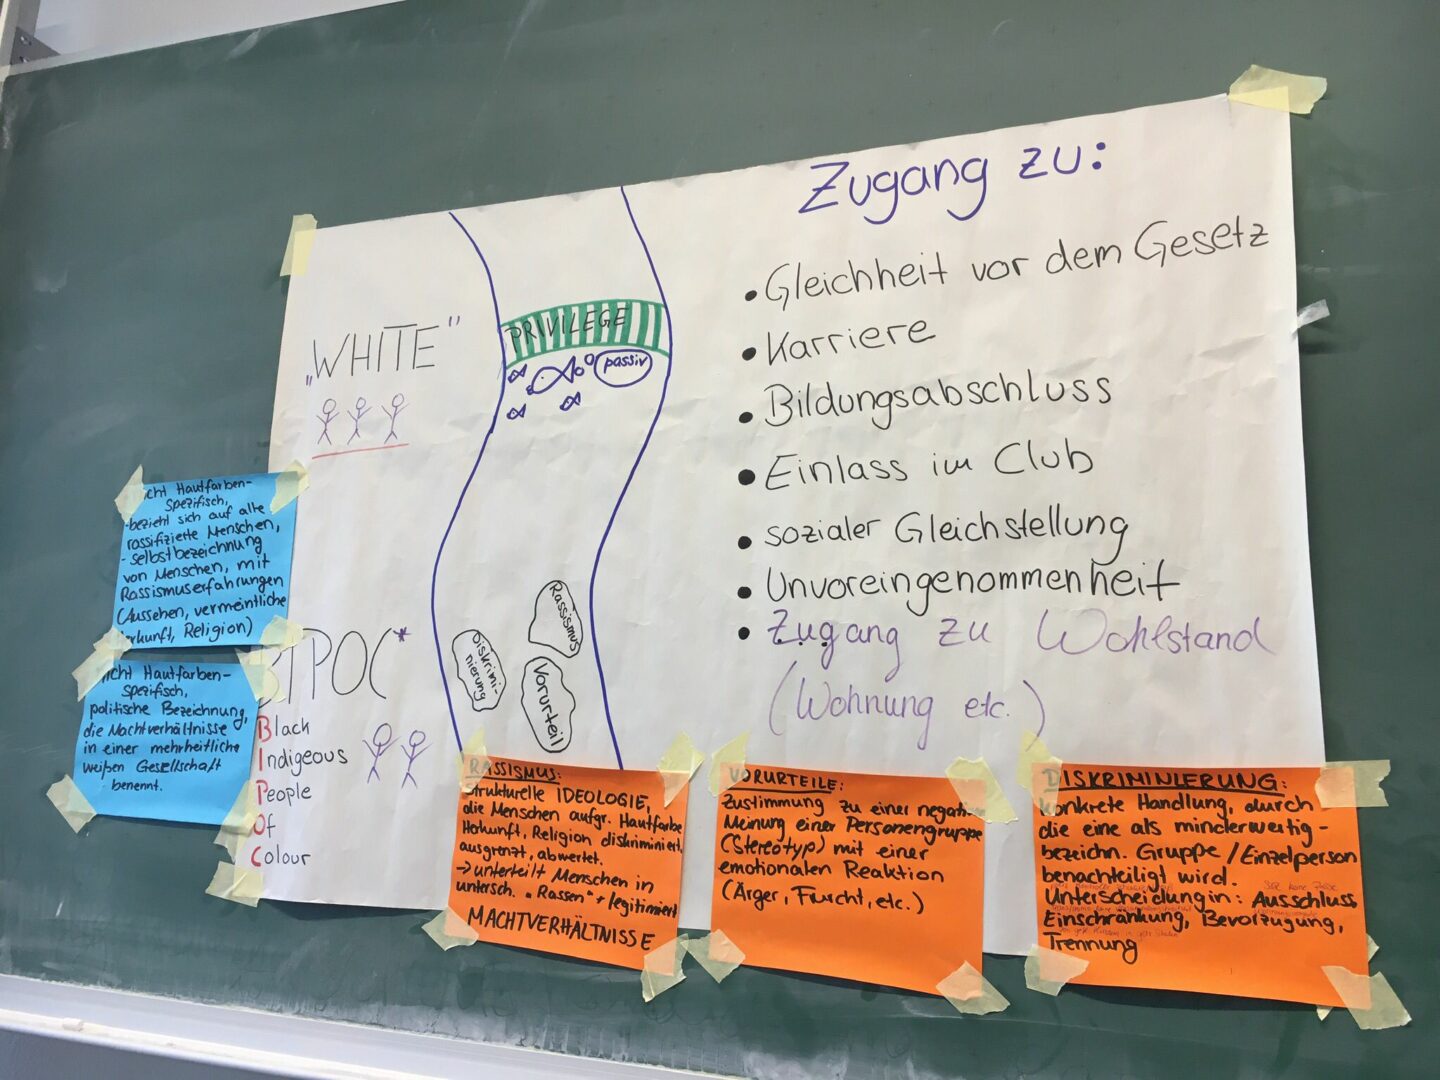 Zugang zu:
• Gleichheit vor dem Gesetz
• Karriere
• Bildungsabschluss
• Einlass im Club
• sozialer Gleichstellung
• Unvoreingenommenheit
• Zugang zu Wohlstand
(Wohnung etc.)
„WHITE"
PRIVILEGE
passiv
Rassismus
Diskrimi-
nierung
Vorurteil
BIPOC*
Black
Indigeous
People
Of
Colour
Hautfarben-
spezifisch,
-bezieht sich auf alle
rassifizierte Menschen,
- selbstbezeichnung
von Menschen, mit
Rassismuserfahrungen
(Aussehen, vermeintliche
erkunft, Religion)
Hautfarben-
spezifisch,
politische Bezeichnung,
die Machtverhältnisse
in einer mehrheitliche
weißen Gesellschaft
benennt.
RASSISMUS:
Strukturelle IDEOLOGIE,
die Menschen aufgr. Hautfarbe
Herkunft, Religion diskriminiert,
ausgrenzt, abwertet.
→ unterteilt Menschen in
untersch. „Rassen" + legitimiert
MACHTVERHÄLTNISSE
VORURTEILE:
Zustimmung zu einer negativ
Meinung einer Personengruppe
(Stereotyp) mit einer
emotionalen Reaktion
(Ärger, Furcht, etc.)
DISKRIMINIERUNG:
konkrete Handlung, durch
die eine als minderwertig-
bezeichn. Gruppe/Einzelperson
benachteiligt wird.
Unterscheidung in: Ausschluss
Einschränkung, Bevorzugung,
Trennung